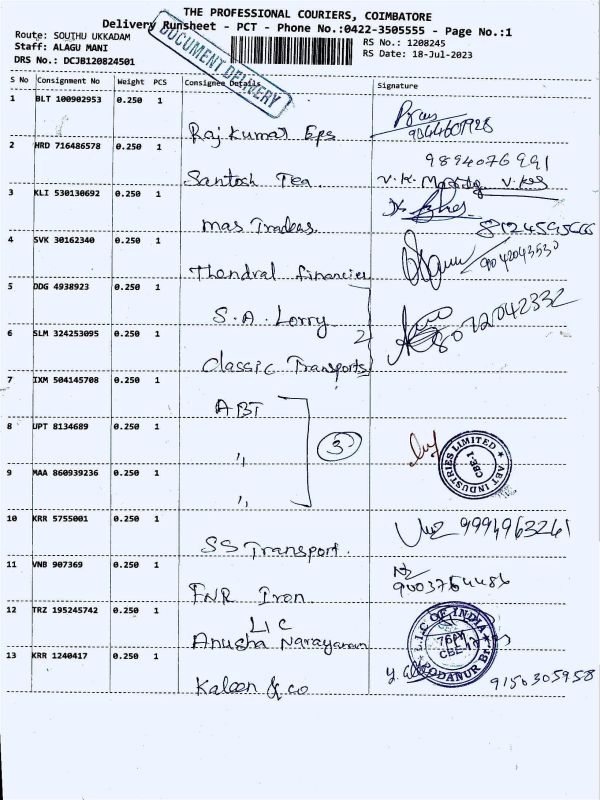 THE PROFESSIONAL COURIERS, COIMBATORE
Delivery Runsheet - PCT - Phone No.:0422-3505555 - Page No.:1
Route: SOUTHU UKKADAM
RS No.: 1208245
Staff: ALAGU MANI
RS Date: 18-Jul-2023
DRS No.: DCJB120824501
DOCUMENT DELIVERY
S No Consignment No Weight PCS Consignee Details Signature
1 BLT 100902953 0.250 1
Raj Kumar Eps
2 HRD 716486578 0.250 1
9894076991
Santosh Tea
3 KLI 530130692 0.250 1
Mas Traders
4 SVK 30162340 0.250 1
Thendral financier
9042043530
5 DDG 4938923 0.250 1
S.A. Lorry
8072042332
6 SLM 324253095 0.250 1
2
Classic Transports
7 IXM 504145708 0.250 1
ABT
8 UPT 8134689 0.250 1
3
,,
ABT INDUSTRIES LIMITED
CBE-1
9 MAA 860939236 0.250 1
,,
10 KRR 5755001 0.250 1
9994963261
SS Transport.
11 VNB 907369 0.250 1
9003764486
FNR Iron
12 TRZ 195245742 0.250 1
LIC
Anusha Narayanan
L.I.C OF INDIA
PODANUR Br.
13 KRR 1240417 0.250 1
9150305958
Kaleen & co